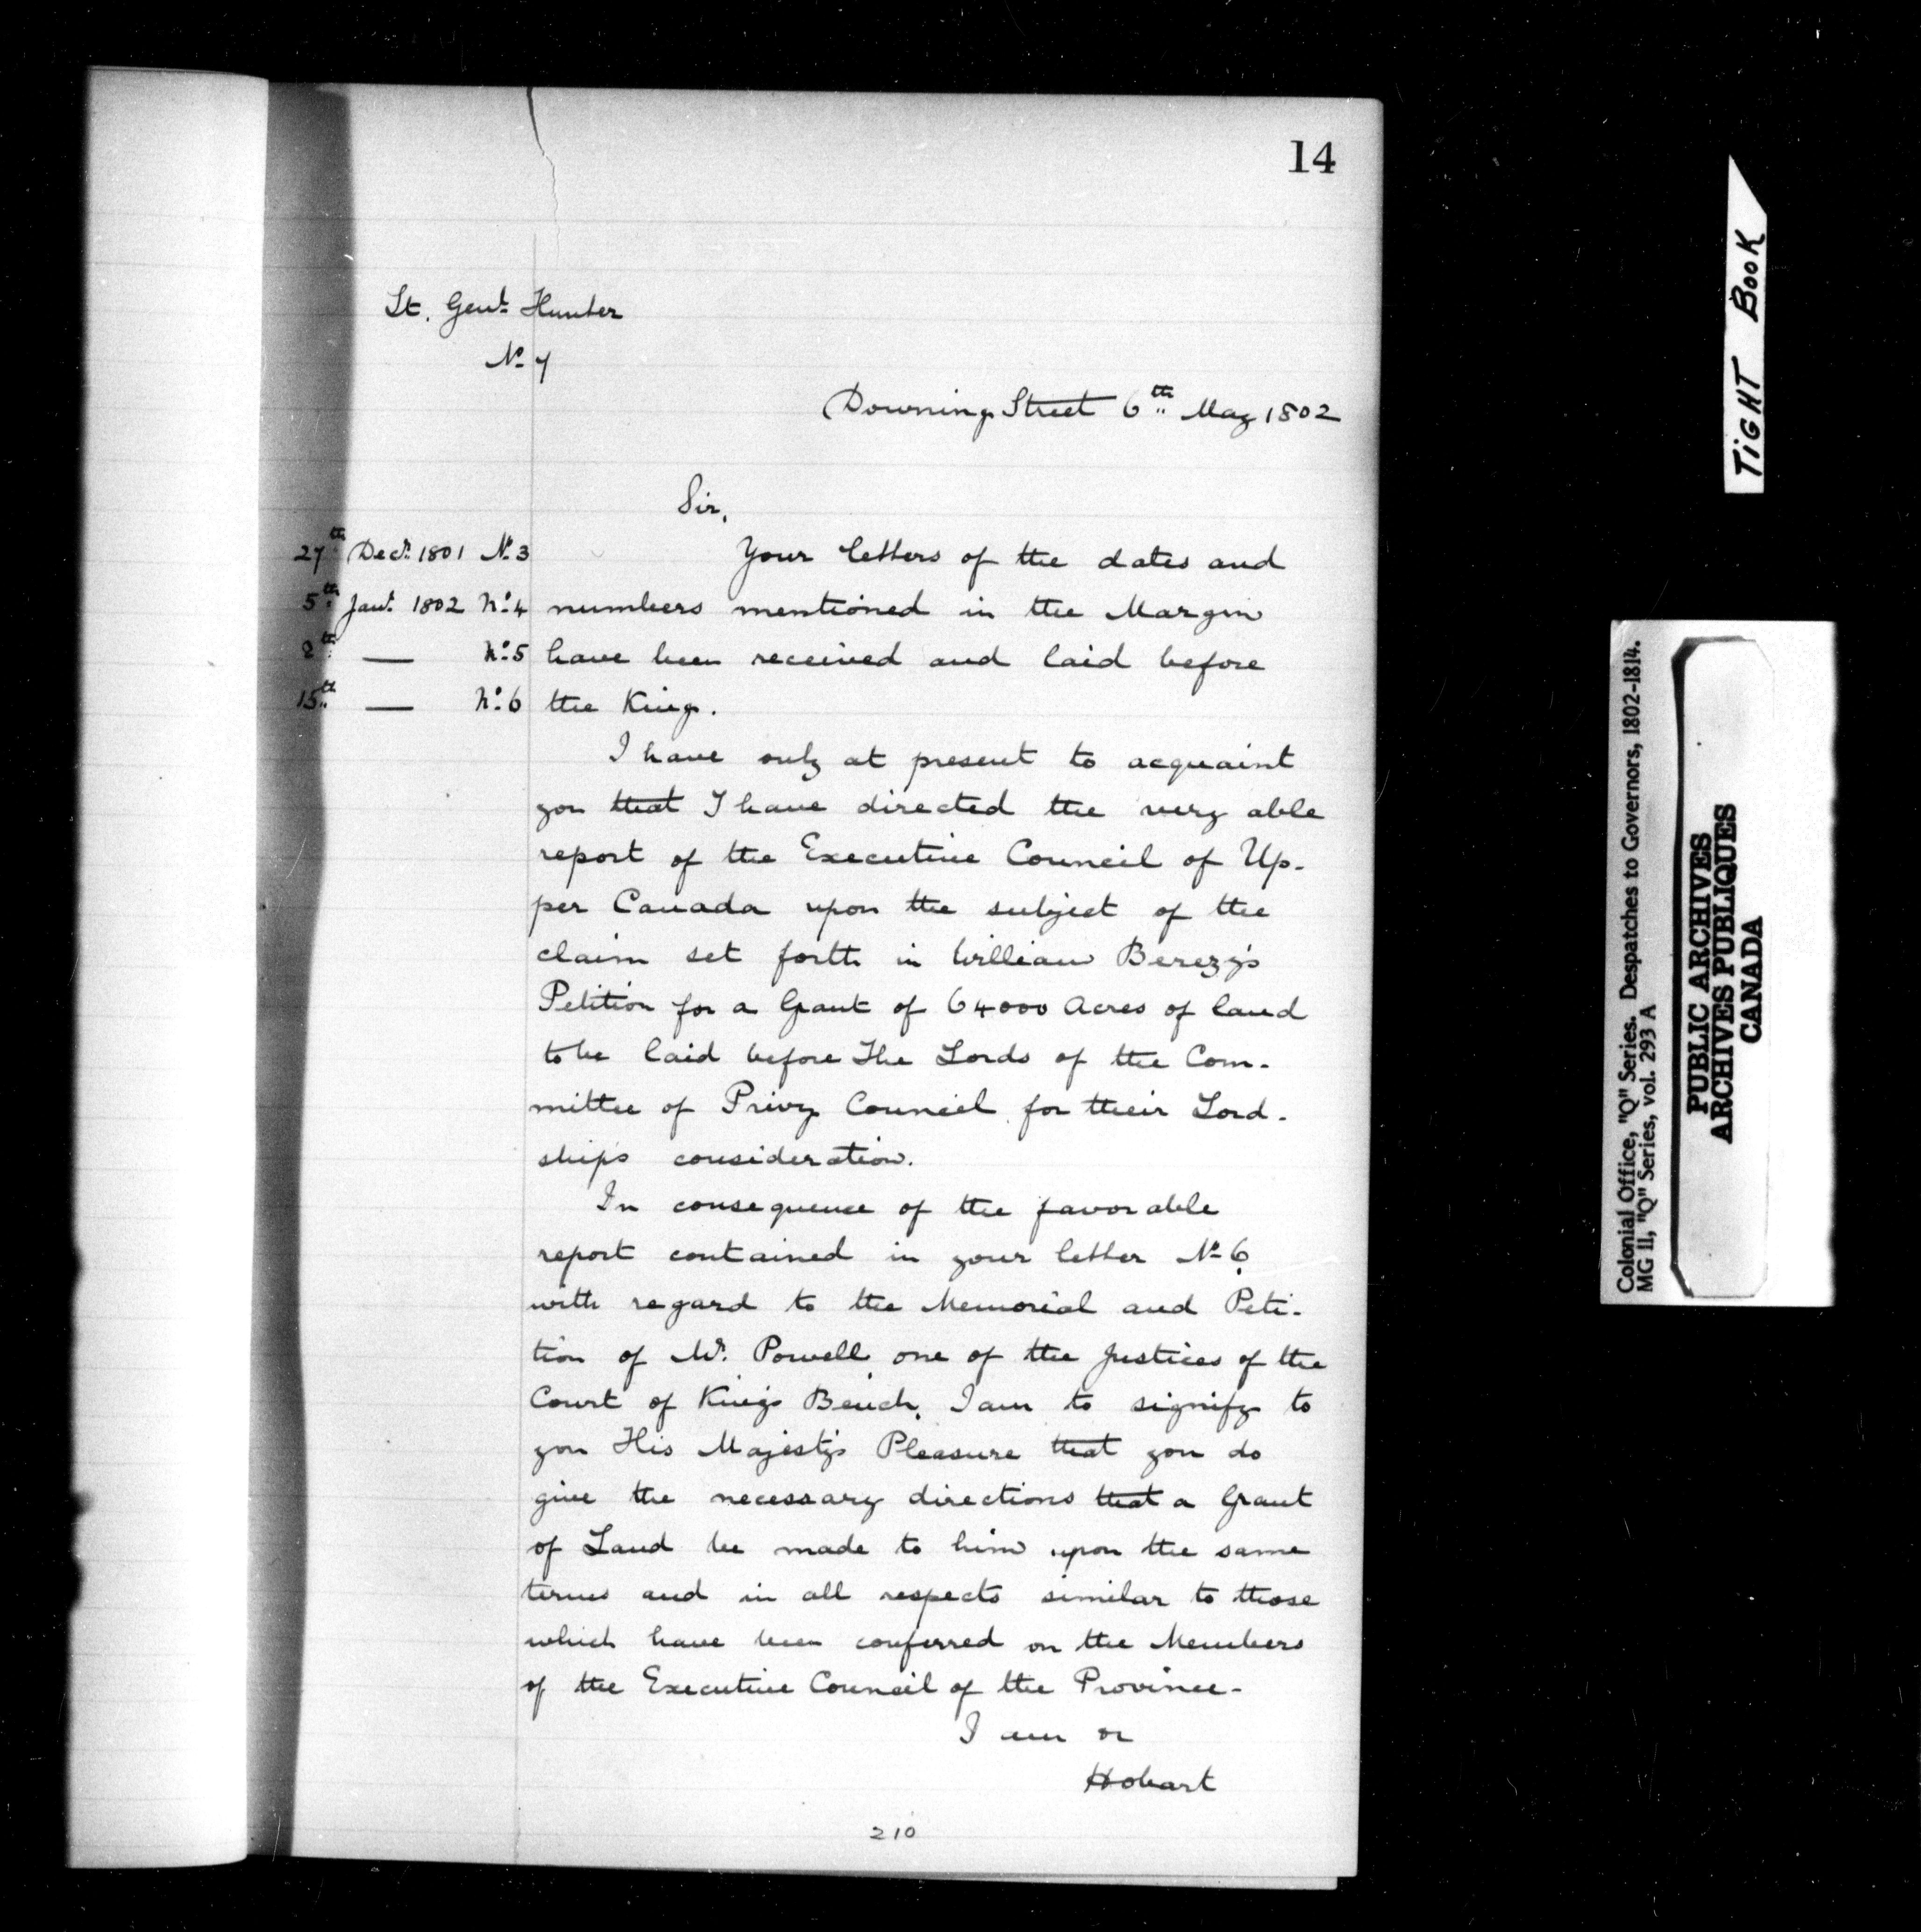 14
Lt. Genl. Hunter
No. 7
Downing Street 6th May 1802
Sir,
27th Decr. 1801 No. 3
5th Jany. 1802 No. 4
8th — No. 5
15th — No. 6
Your letters of the dates and
numbers mentioned in the Margin
have been received and laid before
the King.
I have only at present to acquaint
you that I have directed the very able
report of the Executive Council of Up-
per Canada upon the subject of the
claim set forth in William Berezy's
Petition for a Grant of 64000 Acres of land
to be laid before The Lords of the Com-
mittee of Privy Council for their Lord-
ships consideration.
In consequence of the favorable
report contained in your letter No. 6
with regard to the Memorial and Peti-
tion of Mr. Powell one of the Justices of the
Court of King's Bench, I am to signify to
you His Majesty's Pleasure that you do
give the necessary directions that a Grant
of Land be made to him upon the same
terms and in all respects similar to those
which have been conferred on the Members
of the Executive Council of the Province-
I am &c
Hobart
210
TIGHT BOOK
Colonial Office, "Q" Series. Despatches to Governors, 1802-1814.
MG 11, "Q" Series, vol. 293 A
PUBLIC ARCHIVES
ARCHIVES PUBLIQUES
CANADA